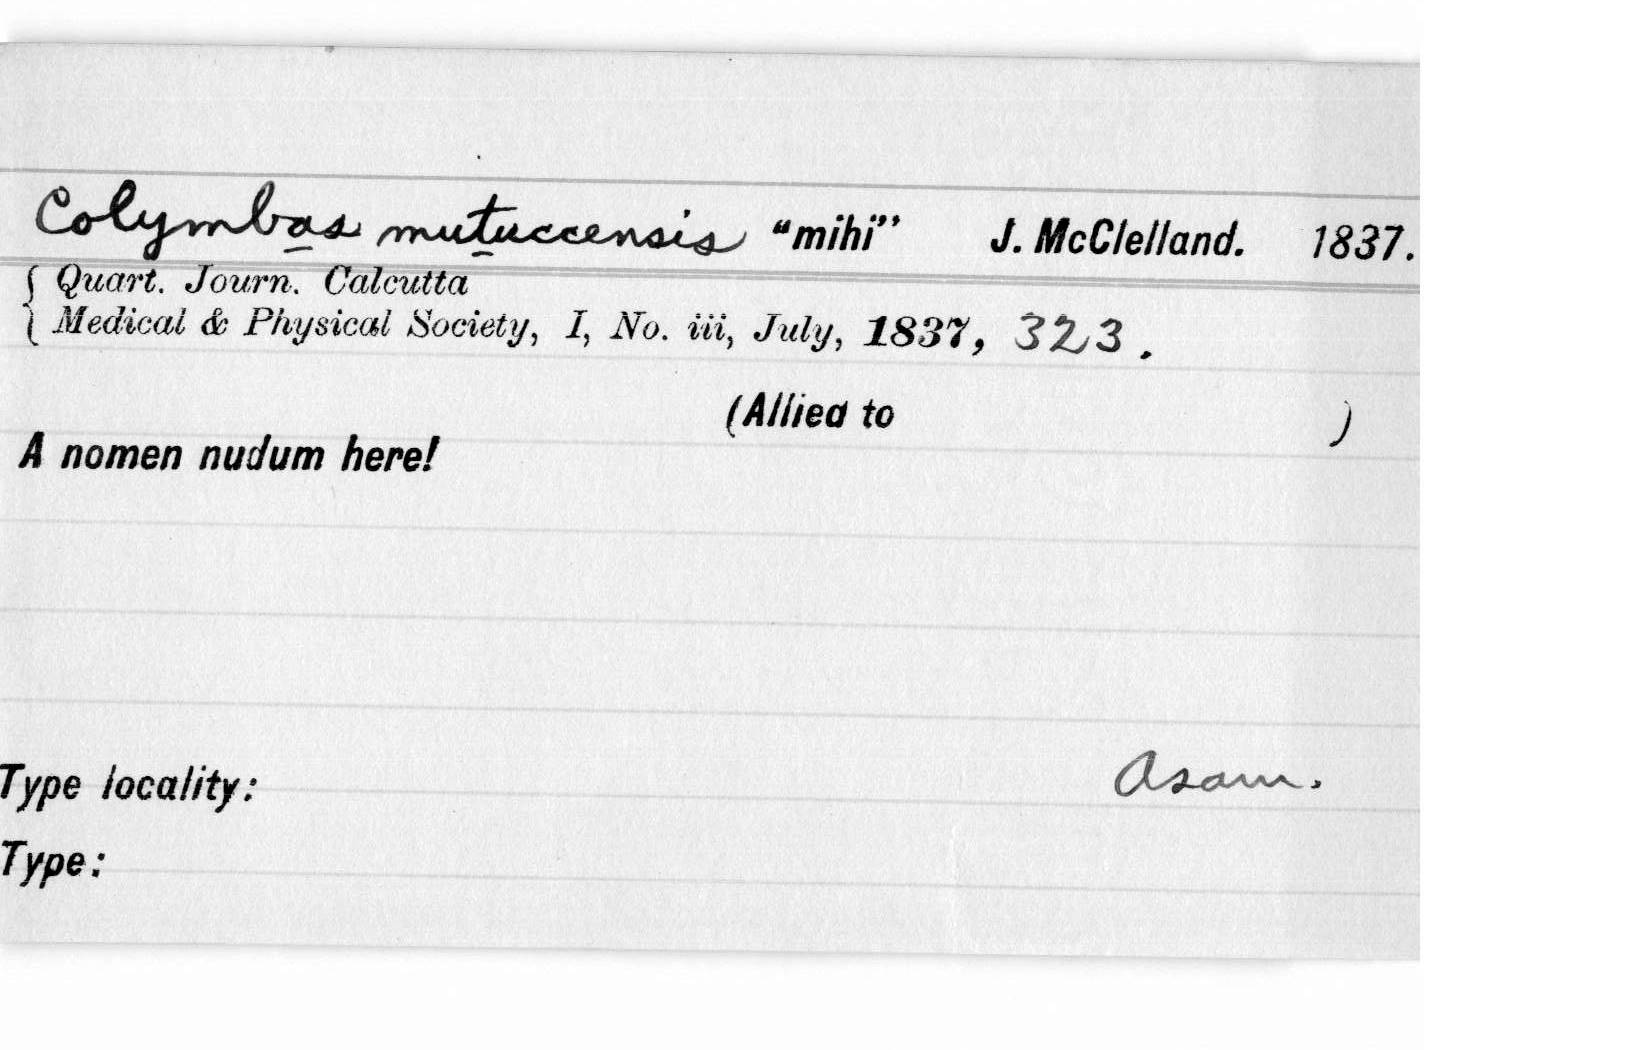 Colymbas mutuccensis “mihi” J. McClelland. 1837.
{ Quart. Journ. Calcutta
{ Medical & Physical Society, I, No. iii, July, 1837, 323.
(Allied to )
A nomen nudum here!
Type locality: Asam.
Type: